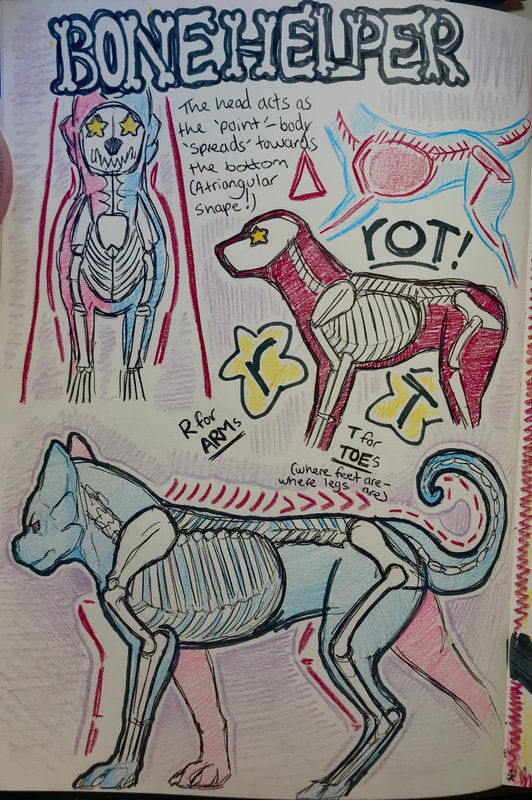 BONEHELPER
The head acts as
the 'point'-body
'spreads' towards
the bottom
(A triangular
shape!)
rOT!
r
T
R for
ARMs
T for
TOEs
(where feet are-
where legs are)